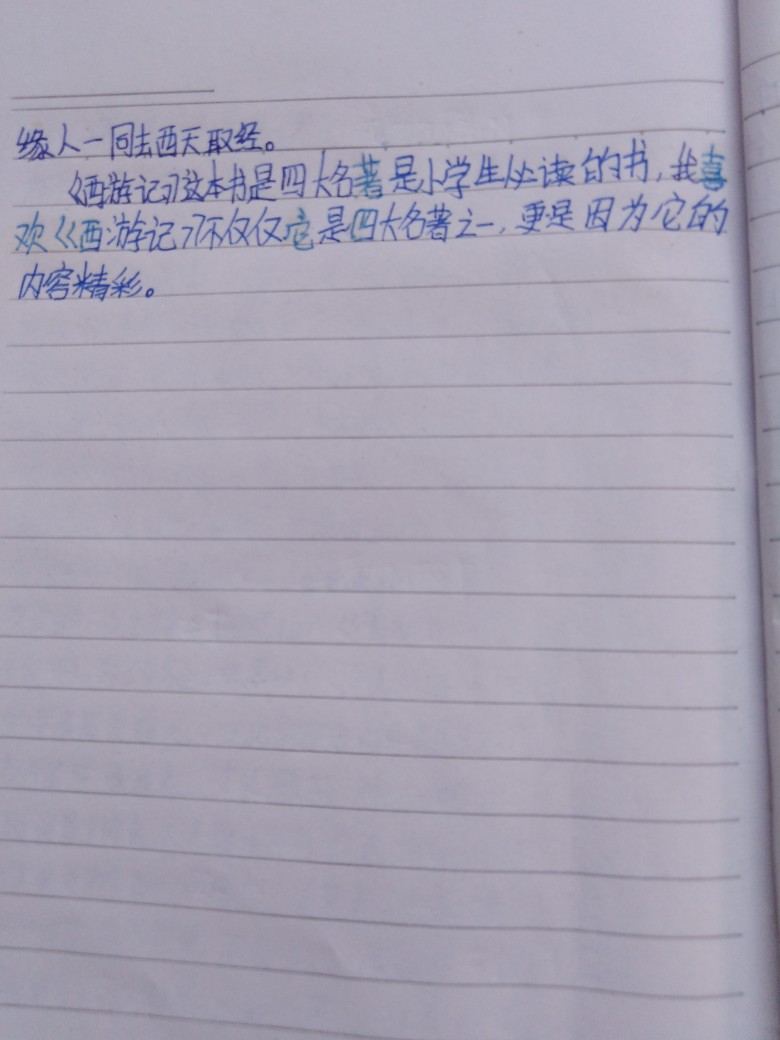 缘人一同去西天取经。
《西游记》这本书是四大名著是小学生必读的书，我喜
欢《西游记》不仅仅它是四大名著之一，更是因为它的
内容精彩。